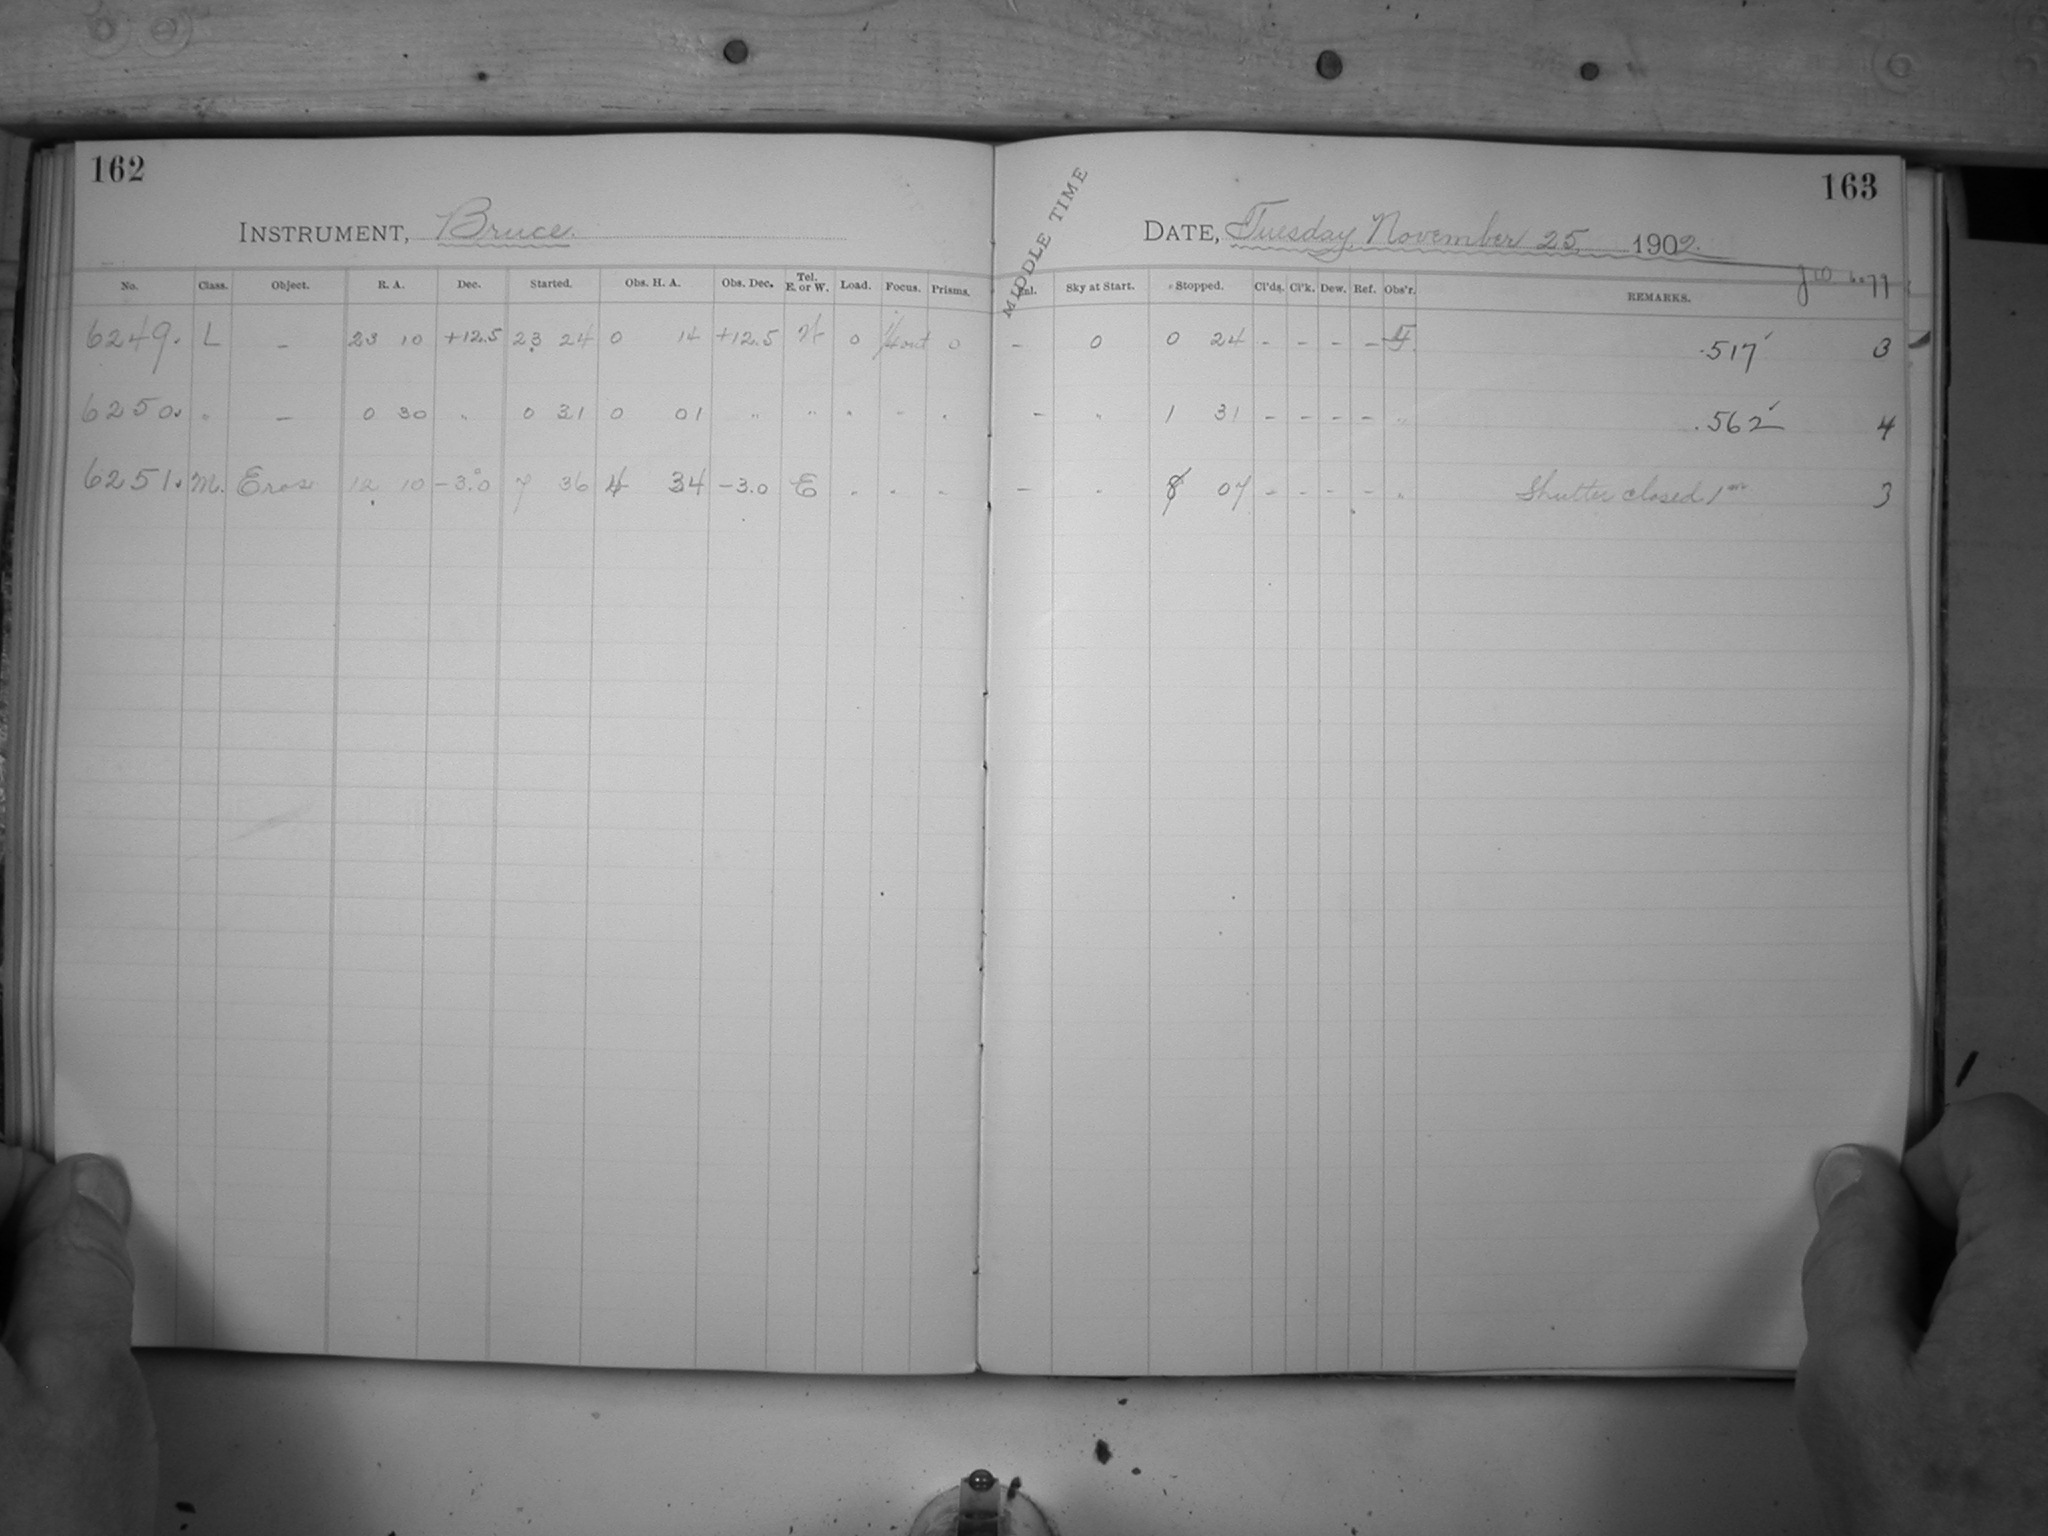 162
INSTRUMENT, Bruce.
No. Class. Object. R. A. Dec. Started. Obs. H. A. Obs. Dec. Tel. E. or W. Load. Focus. Prisms.
6249. L – 23 10 +12.5 23 24 0 14 +12.5 W 0 out 0
6250. " – 0 30 " 0 31 0 01 " " " " "
6251. M. Eros 12 10 -3.0 7 36 4 34 -3.0 E " " "
163
MIDDLE TIME
DATE, Tuesday November 25, 1902.
Sky at Start. Stopped. Cl'ds. Cl'k. Dew. Ref. Obs'r. REMARKS.
– 0 0 24 – – – – .517 3
– " 1 31 – – – – " .562 4
– " 8 07 – – – – " Shutter closed 1m 3